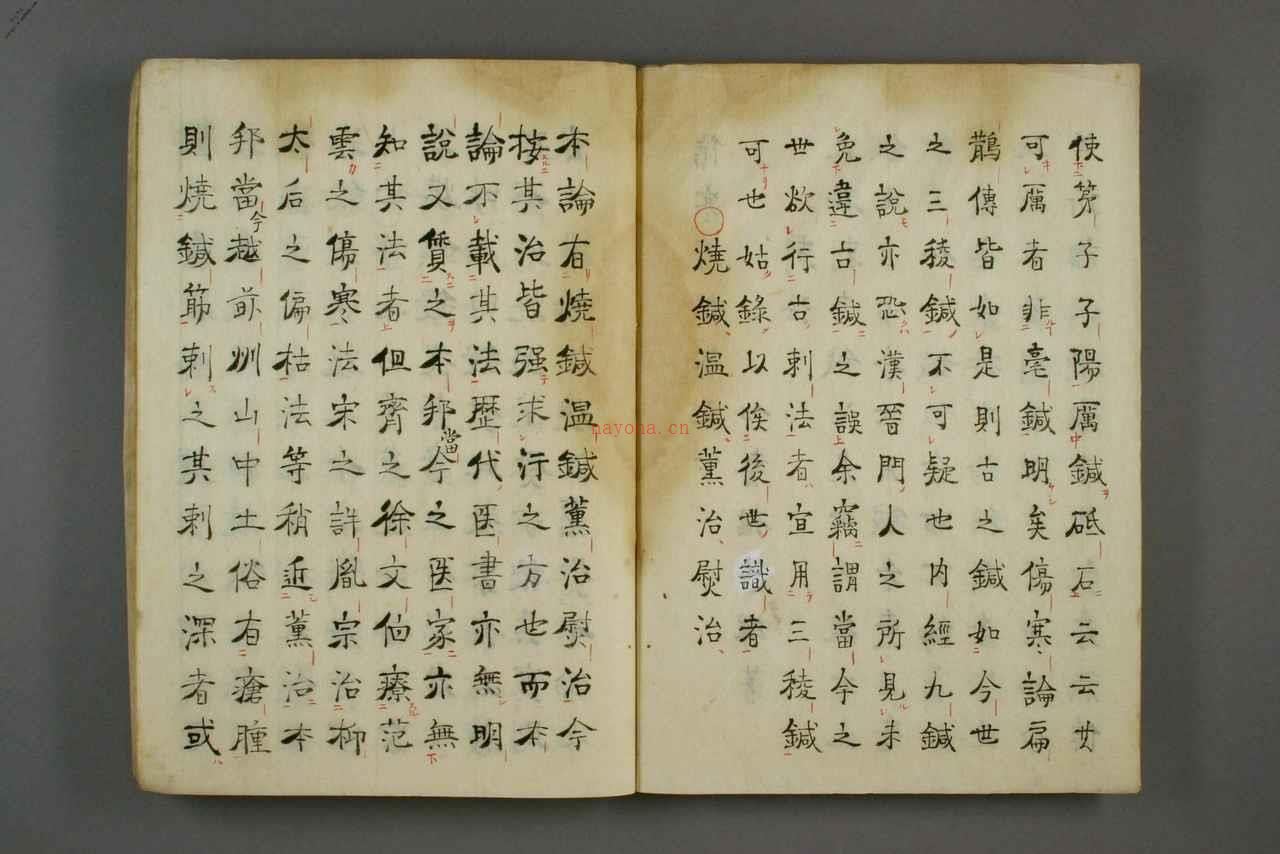 使苐子子陽厲鍼砥石云云其
可厲者非毫鍼明矣傷寒論扁
鵲傳皆如是則古之鍼如今世
之三稜鍼不可疑也内經九鍼
之說亦恐漢晉門人之所見未
免違古鍼之誤余竊謂當今之
世欲行古刺法者宜用三稜鍼
可也姑錄以俟後世識者
燒鍼温鍼薫治熨治
本論有燒鍼温鍼薫治熨治今
按其治皆强求行之方也而本
論不載其法歴代医書亦無明
說又質之本邦當今之医家亦無
知其法者但齊之徐文伯療范
雲之傷寒法宋之許胤宗治柳
太后之偏枯法等稍近薫治本
邦當今越前州山中土俗有瘡腫
則燒鍼筋刺之其刺之深者或
nayona.cn